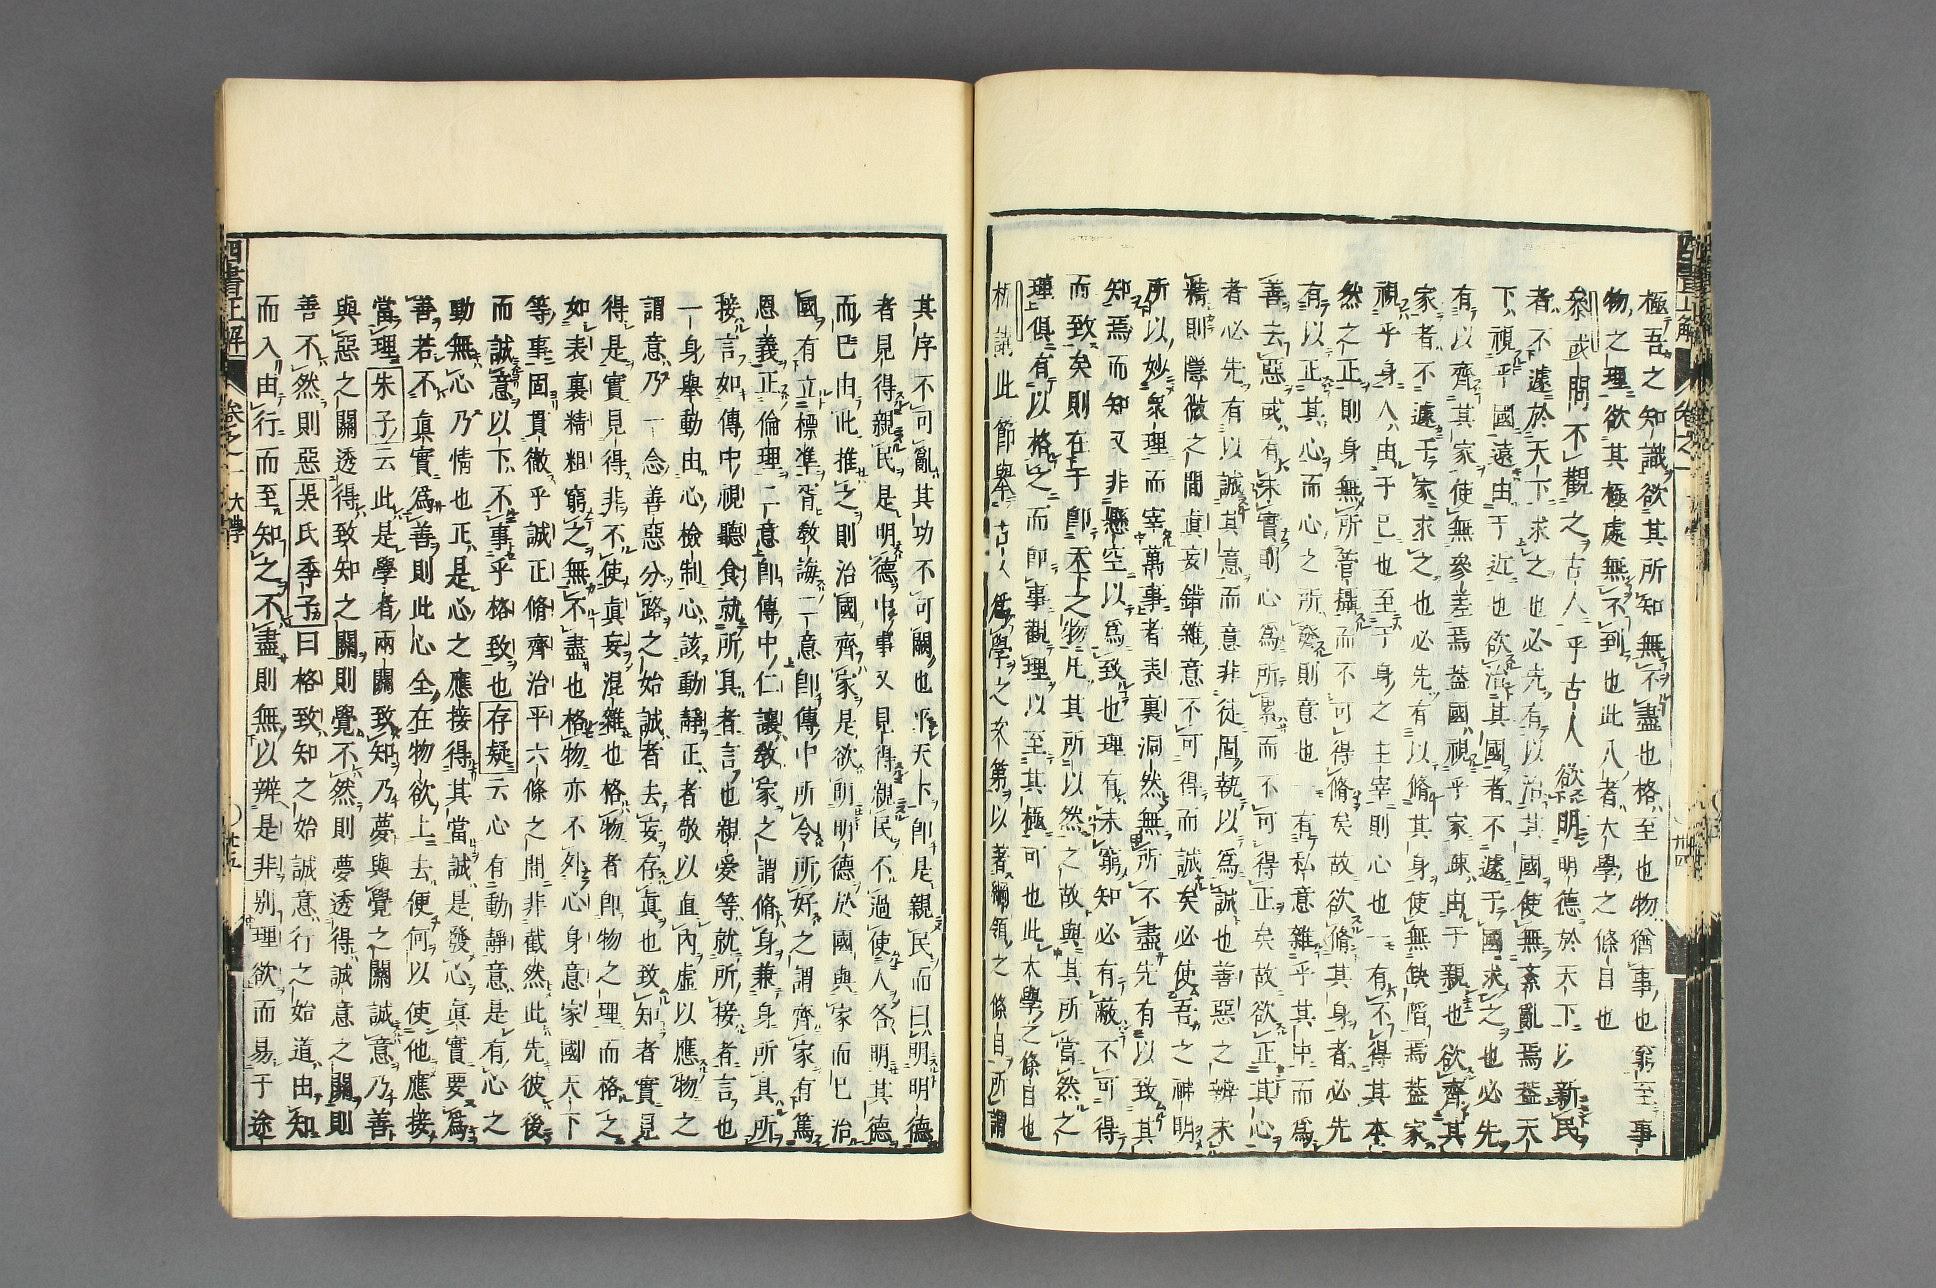 極吾之知識欲其所知無不盡也格至也物猶事也窮至事
物之理欲其極處無不到也此八者大學之條目也
參或問不觀之古人乎古人欲明明德於天下以新民
者不遽於天下求之也必先有以治其國使無紊亂焉葢天
下視乎國遠由于近也欲治其國者不遽于國求之也必先
有以齊其家使無參差焉葢國視乎家疎由于親也欲齊其
家者不遽于家求之也必先有以脩其身使無缺陷焉葢家
視乎身人由于己也至于身之主宰則心也一有不得其本
然之正則身無所管攝而不可得脩矣故欲脩其身者必先
有以正其心而心之所發則意也一有私意雜乎其中而爲
善去惡或有未實則心爲所累而不可得正矣故欲正其心
者必先有以誠其意而意非徒固執以爲誠也善惡之辨未
精則隱微之間眞妄錯雜意不可得而誠矣必使吾之神明
所以妙衆理而宰萬事者表裏洞然無所不盡先有以致其
知焉而知又非懸空以爲致也理有未窮知必有蔽不可得
而致矣則在于卽天下之物凡其所以然之故與其所當然之
理俱有以格之而卽事觀理以至其極可也此大學之條目也
析講此節舉古人爲學之次第以著綱領之條目所謂
其序不可亂其功不可闕也平天下卽是親民而曰明明德
者見得親民是明德中事又見得親民不過使人各明其德
而已由此推之則治國齊家是欲明明德於國與家而已治
國有立標準胥敎誨二意卽傳中所令所好之謂齊家有篤
恩義正倫理二意卽傳中仁讓敎家之謂脩身兼身所具所
接言如傳中視聽食就所具者言也親愛等就所接者言也
一身舉動由心檢制心該動靜正者敬以直內虛以應物之
謂意乃一念善惡分路之始誠者去妄存眞也致知者實見
得是實見得非不使眞妄混雜也格物者卽物之理而格之
如表裏精粗窮之無不盡也格物亦不外心身意家國天下
等事固貫徹乎誠正脩齊治平六條之間非截然此先彼後
而誠意以下不事乎格致也存疑云心有動靜意是有心之
動無心乃情也正是心之應接得其當誠是發心眞實要爲
善若不眞實爲善則此心全在物欲上去便何以使他應接
當理朱子云此是學者兩關致知乃夢與覺之關誠意乃善
與惡之關透得致知之關則覺不然則夢透得誠意之關則
善不然則惡吳氏季子曰格致知之始誠意行之始道由知
而入由行而至知之不盡則無以辨是非別理欲而易于途
四書正解 卷之一 大學 廿五